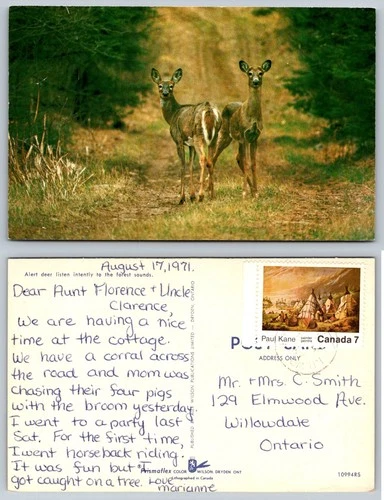 August 17, 1971.
Alert deer listen intently to the forest sounds.
Dear Aunt Florence & Uncle
Clarence,
We are having a nice
time at the cottage.
We have a corral across
the road and mom was
chasing their four pigs
with the broom yesterday.
I went to a party last
Sat. For the first time,
I went horseback riding.
It was fun but I
got caught on a tree. Love
Marianne
Paul Kane
Canada 7
POST CARD
ADDRESS ONLY
Mr. & Mrs. C. Smith
129 Elmwood Ave.
Willowdale
Ontario
COLOR
WILSON, DRYDEN ONT
Lithographed in Canada
10994RS